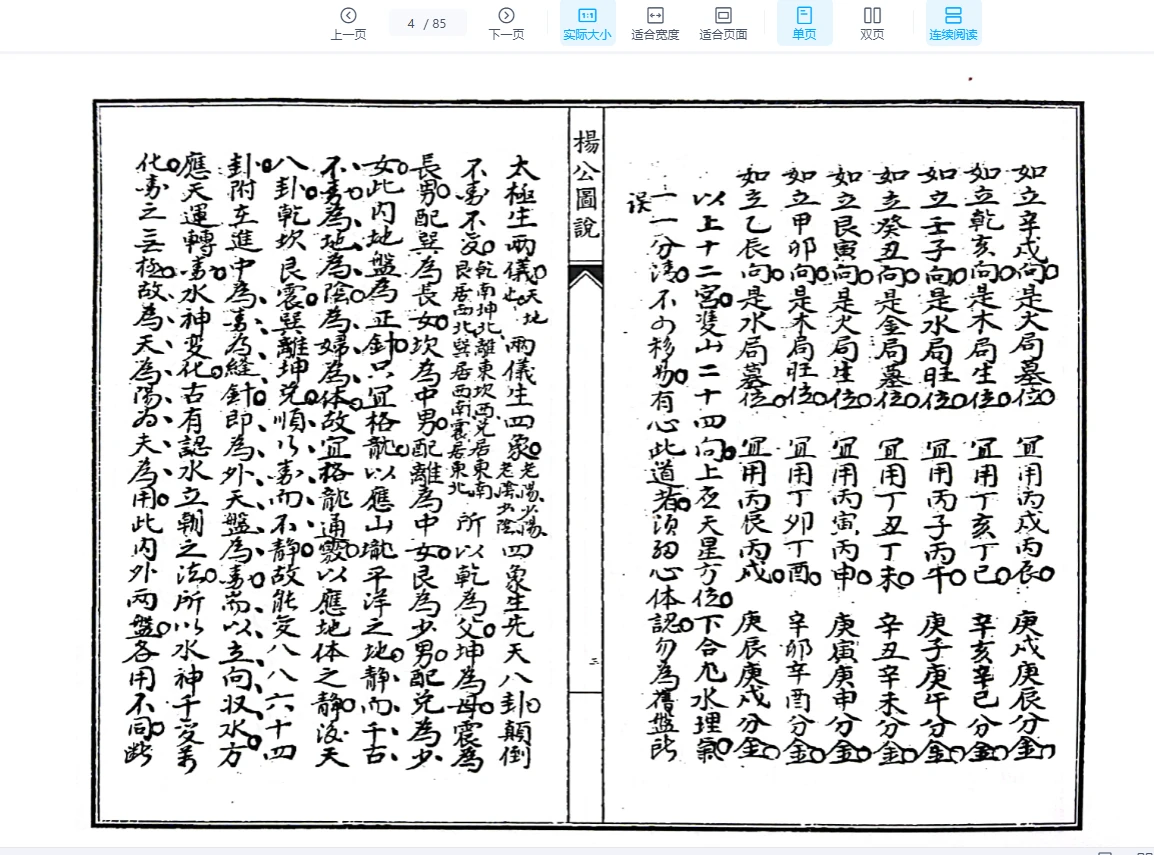 上一页
4 / 85
下一页
实际大小
适合宽度
适合页面
单页
双页
连续阅读
如立辛戌向是火局墓位宜用丙戌丙辰庚戌庚辰分金
如立乾亥向是木局生位宜用丁亥丁巳辛亥辛巳分金
如立壬子向是水局旺位宜用丙子丙午庚子庚午分金
如立癸丑向是金局墓位宜用丁丑丁未辛丑辛未分金
如立艮寅向是火局生位宜用丙寅丙申庚寅庚申分金
如立甲卯向是木局旺位宜用丁卯丁酉辛卯辛酉分金
如立乙辰向是水局墓位宜用丙辰丙戌庚辰庚戌分金
以上十二宮雙山二十四向上應天星方位下合九水理氣
一一分清不可移易有心此道者須細心体認勿為舊盤所
误
楊公圖說
三
太極生两儀天地两儀生四象老陽少陽老陰少陰四象生先天八卦顛倒
不易不变乾南坤北離東坎西兑居東南艮居西北巽居西南震居東北所以乾為父坤為母震為
長男配巽為長女坎為中男配離為中女艮為少男配兑為少
女此内地盤為正針只宜格龍以應山壠平洋之地静而千古
不易為地為陰為婦為体故宜格龍通竅以應地体之静後天
八卦乾坎艮震巽離坤兑順以易而不静故能变八八六十四
卦附在進中為易為縫針即為外天盤為易而以立向収水方
應天運轉易水神变化古有認水立朝之法所以水神千变萬
化易之三極故為天為陽為夫為用此内外两盤各用不同断